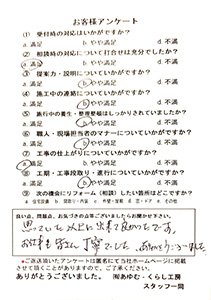 お客様アンケート
① 受付時の対応はいかがですか？
a.満足 b.やや満足 c.やや不満 d.不満
② 相談時の対応について打合せは充分でしたか？
a.満足 b.やや満足 d.不満
③ 提案力・説明についていかがですか？
a.満足 b.やや満足 d.不満
④ 施工中の連絡についていかがですか？
a.満足 b.やや満足 d.不満
⑤ 施行中の養生・整理整頓はしっかりされていましたか？
a.満足 b.やや満足 d.不満
⑥ 職人・現場担当者のマナーについていかがですか？
a.満足 b.やや満足 d.不満
⑦ 工事の仕上がりについていかがですか？
a.満足 b.やや満足 d.不満
⑧ 工期・工事段取り・進行についていかがですか？
a.満足 b.やや満足 d.不満
⑨ 次の機会にリフォーム（相談）したい箇所はどこですか？
良い点、問題点、お気づきの点等ございましたらお聞かせ下さい。
思っていた以上に出来て良かったです。
お仕事も皆さん丁寧でした。ありがとうございました。
＊ご返送頂いたアンケートは匿名にて当社ホームページに掲載
させて頂くことがありますので、ご了承ください。
ありがとうございました。 ㈲あゆむ・くらし工房
スタッフ一同